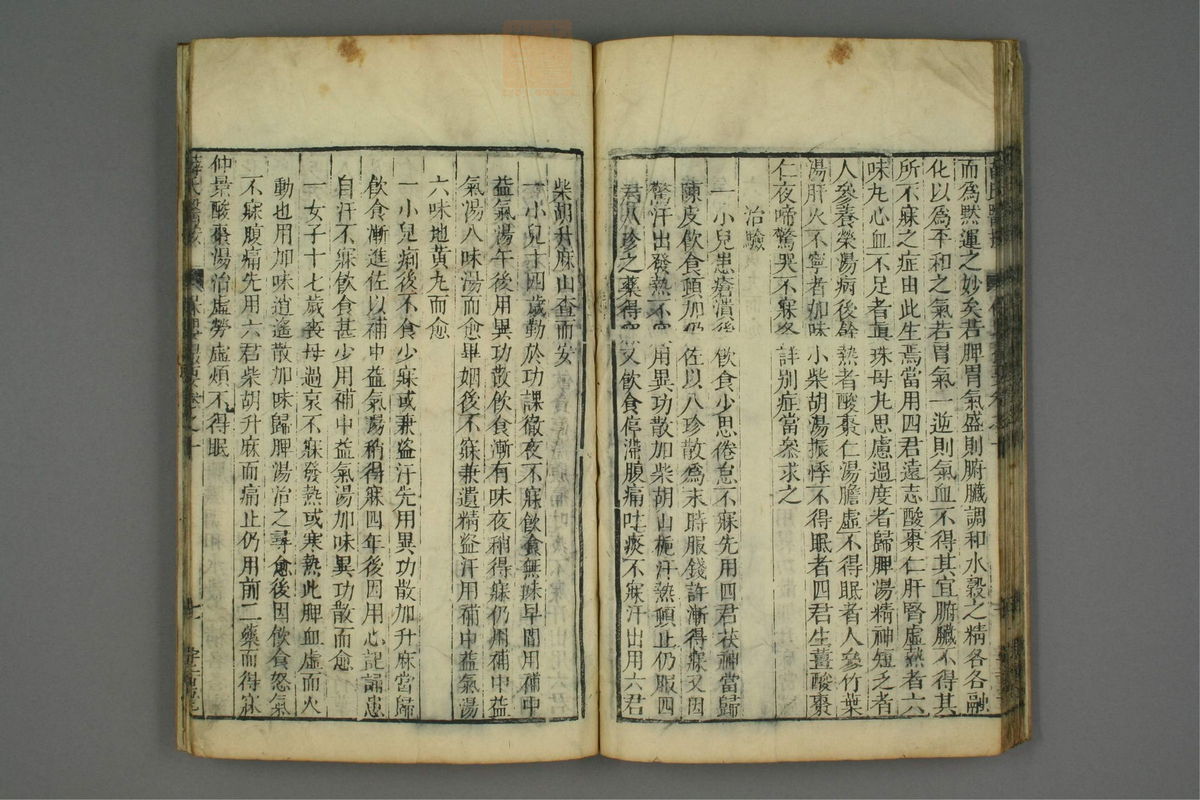 而爲黙運之妙矣若脾胃氣盛則腑臟調和水穀之精各各融
化以爲平和之氣若胃氣一逆則氣血不得其宜腑臟不得其
所不寐之症由此生焉當用四君遠志酸棗仁肝腎虛熱者六
味丸心血不足者眞珠母丸思慮過度者歸脾湯精神短乏者
人參養榮湯病後餘熱者酸棗仁湯膽虛不得眠者人參竹葉
湯肝火不寧者加味小柴胡湯振悸不得眠者四君生薑酸棗
仁夜啼驚哭不寐各詳别症當叅求之
治驗
一小兒患瘡潰後飲食少思倦怠不寐先用四君茯神當歸
陳皮飲食頓加仍佐以八珍散爲末時服錢許漸得寐又因
驚汗出發熱不寐用異功散加柴胡山梔汗熱頓止仍服四
君八珍之藥得寐又飲食停滯腹痛吐痰不寐汗出用六君
柴胡升麻山查而安
一小兒十四歲勤於功課徹夜不寐飲食無味早間用補中
益氣湯午後用異功散飲食漸有味夜稍得寐仍用補中益
氣湯八味湯而愈畢姻後不寐兼遺精盗汗用補中益氣湯
六味地黃丸而愈
一小兒痢後不食少寐或兼盗汗先用異功散加升麻當歸
飲食漸進佐以補中益氣湯稍得寐四年後因用心記誦患
自汗不寐飲食甚少用補中益氣湯加味異功散而愈
一女子十七歲喪母過哀不寐發熱或寒熱此脾血虛而火
動也用加味逍遙散加味歸脾湯治之尋愈後因飲食怒氣
不寐腹痛先用六君柴胡升麻而痛止仍用前二藥而得寐
仲景酸棗湯治虛勞虛煩不得眠